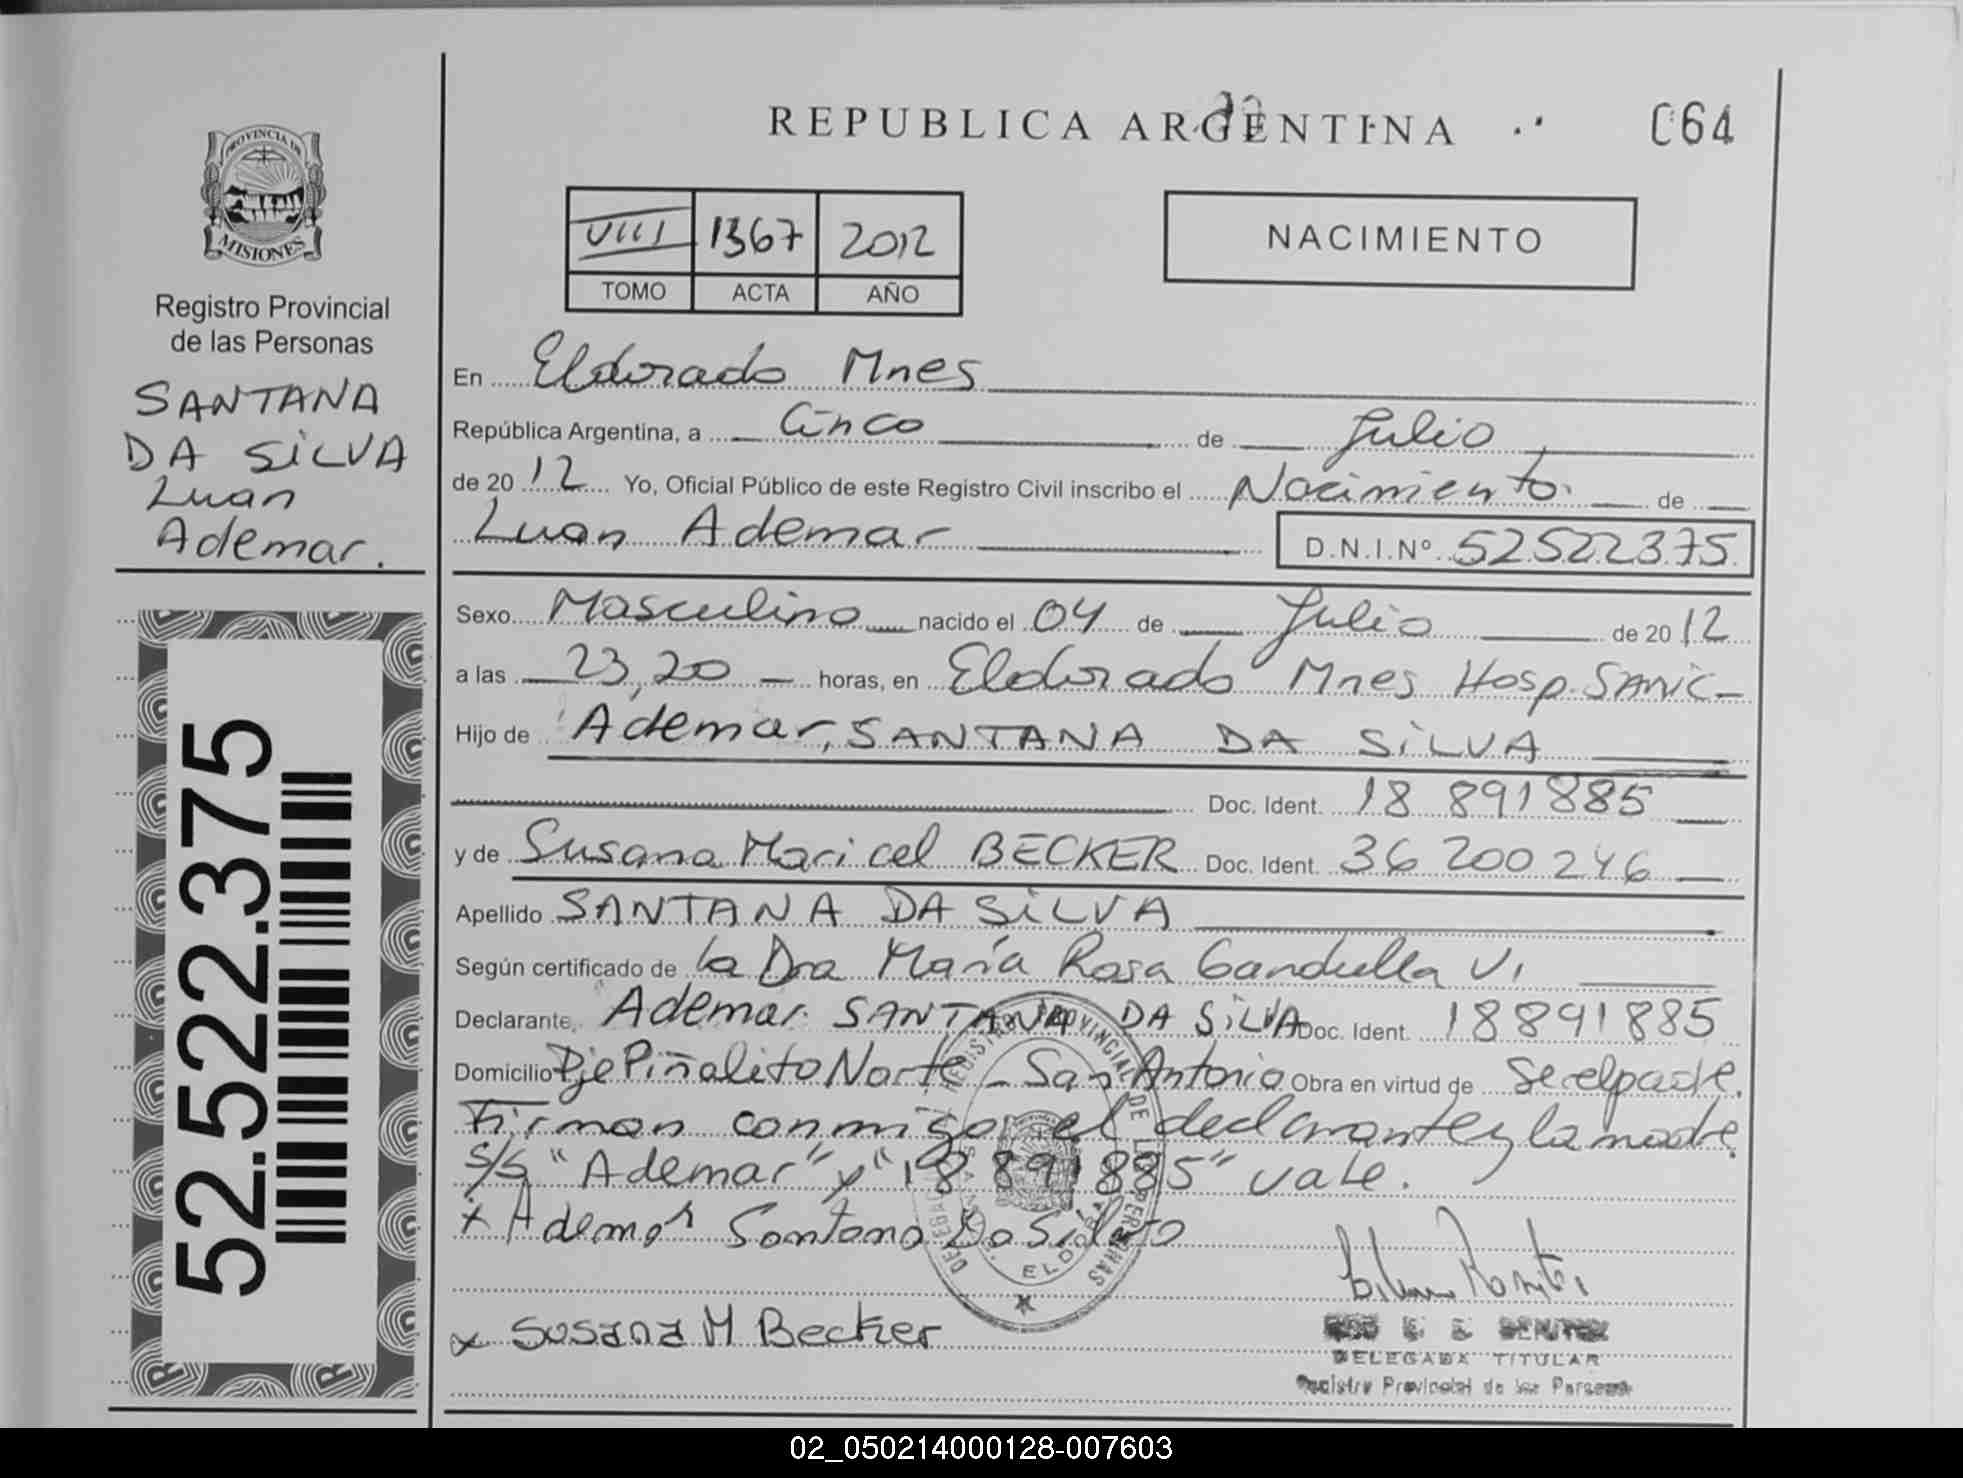 PROVINCIA DE
MISIONES
Registro Provincial
de las Personas
SANTANA
DA SiLVA
Luan
Ademar.
52.522.375
REPUBLICA ARGENTINA
064
VIII 1367 2012
TOMO ACTA AÑO
NACIMIENTO
En Eldorado Mnes
República Argentina, a Cinco de Julio
de 2012 Yo, Oficial Público de este Registro Civil inscribo el Nacimiento de
Luan Ademar D.N.I.Nº 52522375
Sexo Masculino nacido el 04 de Julio de 2012
a las 23,20 horas, en Eldorado Mnes Hosp. SAMIC
Hijo de Ademar, SANTANA DA SiLVA
Doc. Ident. 18 891885
y de Susana Maricel BECKER Doc. Ident. 36 200 246
Apellido SANTANA DA SiLVA
Según certificado de la Dra María Rosa Gandulla V.
Declarante Ademar SANTANA DA SiLVA Doc. Ident. 18891885
Domicilio Pje Piñalito Norte - San Antonio Obra en virtud de Ser el padre.
Firman conmigo el declarante y la madre.
S/S "Ademar" y "18 891885" vale.
x Ademar Santana Da Silva
x Susana M Becker
REGISTRO PROVINCIAL DE LAS PERSONAS
BENITEZ
DELEGADA TITULAR
Registro Provincial de las Personas
02_050214000128-007603